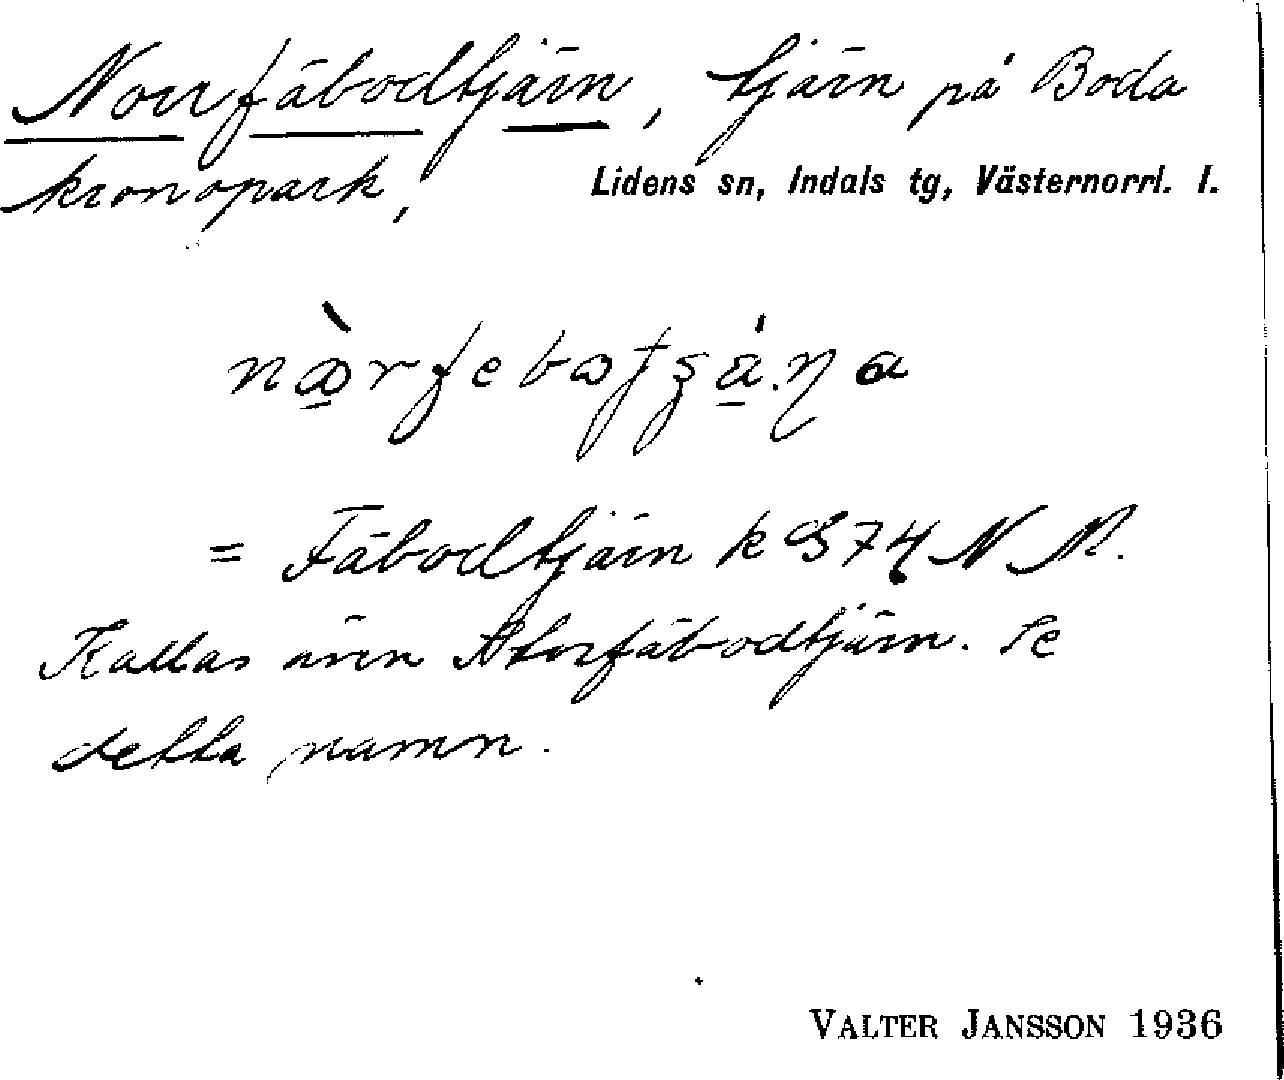 Norrfäbodtjärn, tjärn på Boda
kronopark,
Lidens sn, Indals tg, Västernorrl. l.
= Fäbodtjärn k S 74 N
Kallas även Storfäbodtjärn. Se
detta namn.
VALTER JANSSON 1936